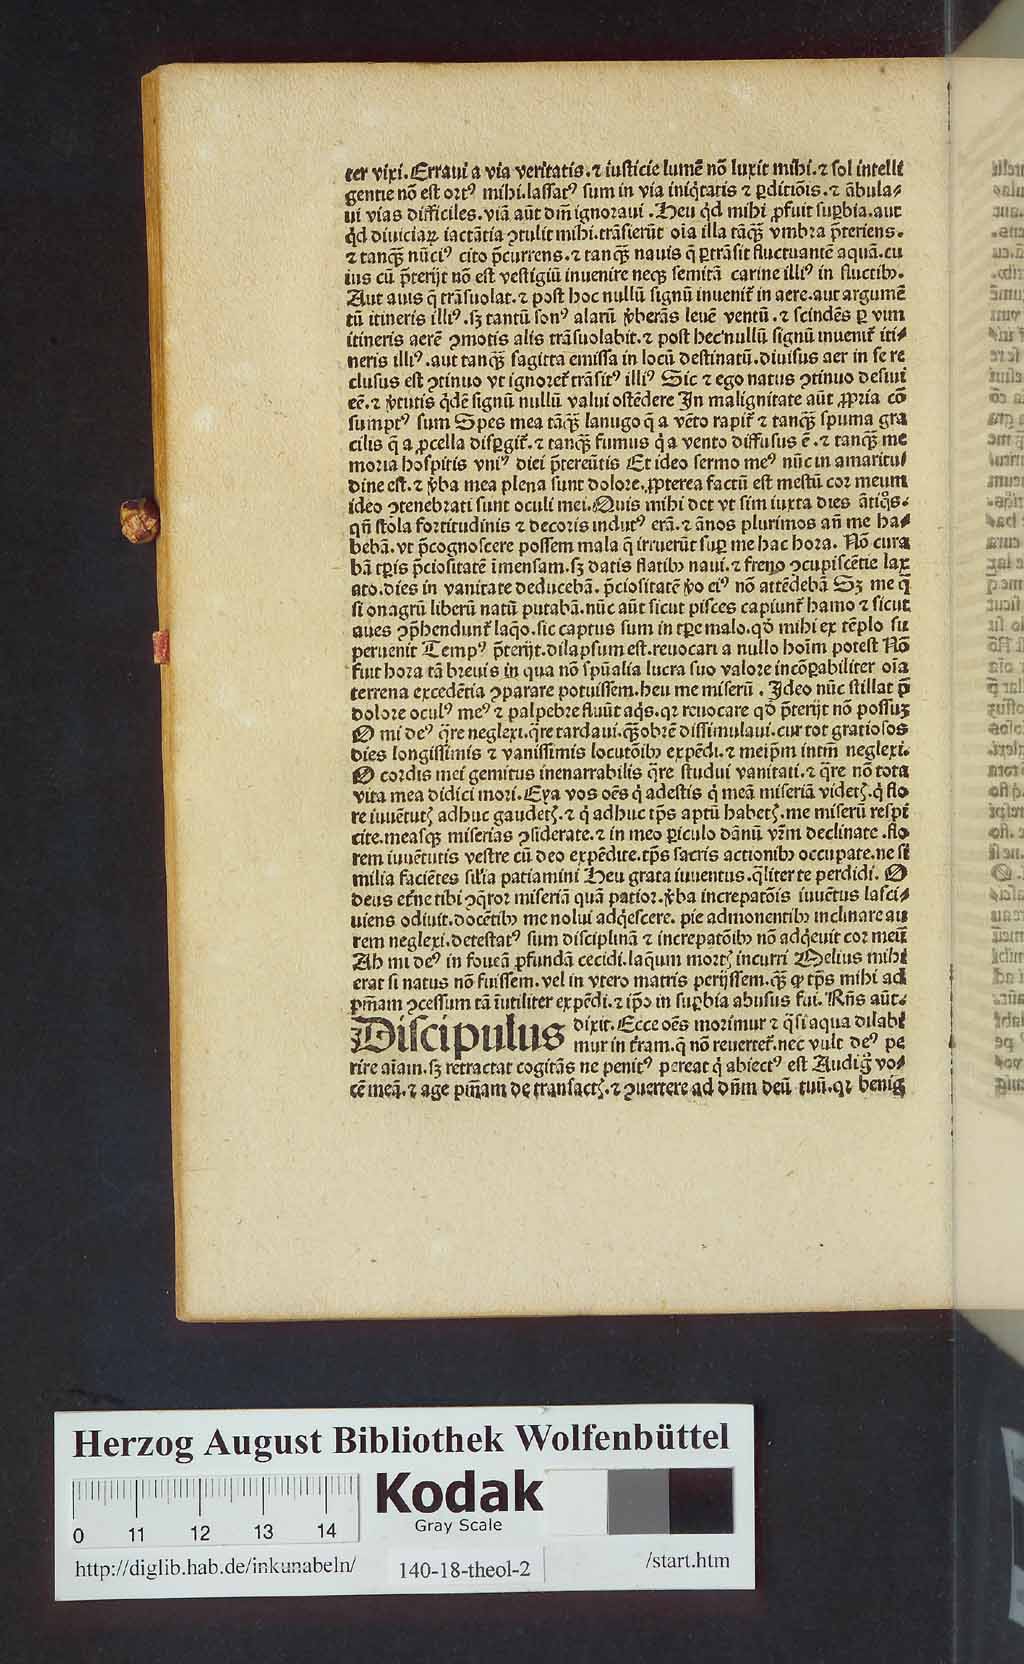 ter vixi. Erraui a via veritatis. ⁊ iusticie lumē nō luxit mihi. ⁊ sol intelli
gentie nō est ortꝰ mihi. lassatꝰ sum in via iniq̇tatis ⁊ ꝑditiōis. ⁊ ābula-
ui vias difficiles. viā aūt dn̄i ignoraui. Heu qͥd mihi ꝓfuit suꝑbia. aut
qͥd diuiciaꝝ iactātia ꝯtulit mihi. trāsierūt oīa illa tāqꝫ̄ vmbra p̄teriens.
⁊ tanqꝫ̄ nūciꝰ cito p̄currens. ⁊ tanqꝫ̄ nauis q̄ ꝑtrāsit fluctuantē aquā. cu
ius cū p̄terijt nō est vestigiū inuenire neqꝫ semitā carine illiꝰ in fluctibꝫ.
Aut auis q̄ trāsuolat. ⁊ post hoc nullū signū inuenit̄ in aere. aut argumē
tū itineris illiꝰ. sꝫ tantū sonꝰ alarū v̓berās leuē ventū. ⁊ scindēs ꝑ vim
itineris aerē ꝯmotis alis trāsuolabit. ⁊ post hec nullū signū inuenit̄ iti-
neris illiꝰ. aut tanqꝫ̄ sagitta emissa in locū destinatū. diuisus aer in se re
clusus est ꝯtinuo vt ignoret̄ trāsitꝰ illiꝰ Sic ⁊ ego natus ꝯtinuo desiui
eē. ⁊ v̓tutis qͥdē signū nullū valui ostēdere In malignitate aūt ꝓpria cō
sumptꝰ sum Spes mea tāqꝫ̄ lanugo q̄ a vēto rapit̄ ⁊ tanqꝫ̄ spuma gra
cilis q̄ a ꝓcella disꝑgit̄. ⁊ tanqꝫ̄ fumus qͥ a vento diffusus ē. ⁊ tanqꝫ̄ me
moria hospitis vniꝰ diei p̄tereūtis Et ideo sermo meꝰ nūc in amaritu-
dine est. ⁊ v̓ba mea plena sunt dolore. ꝓpterea factū est mestū cor meum
ideo ꝯtenebrati sunt oculi mei. Quis mihi det vt sim iuxta dies ātiqͦs.
qn̄ stola fortitudinis ⁊ decoris indutꝰ erā. ⁊ ānos plurimos an̄ me ha-
bebā. vt p̄cognoscere possem mala q̄ irruerūt suꝑ me hac hora. Nō cura
bā tꝑis p̄ciositatē īmensam. sꝫ datis flatibꝫ naui. ⁊ freno ꝯcupiscētie lax
ato. dies in vanitate deducebā. p̄ciositatē v̓o eiꝰ nō attēdebā Sꝫ me q̄
si onagrū liberū natū putabā. nūc aūt sicut pisces capiunt̄ hamo ⁊ sicut
aues ꝯp̄hendunt̄ laq̇o. sic captus sum in tꝑe malo. qd̓ mihi ex tēplo su
peruenit Tempꝰ p̄terijt. dilapsum est. reuocari a nullo hoīm potest Nō
fuit hora tā breuis in qua nō spūalia lucra suo valore incōꝑabiliter oīa
terrena excedētia ꝯparare potuissem. heu me miserū. Ideo nūc stillat p̄
dolore oculꝰ meꝰ ⁊ palpebre fluūt aqͣs. qꝛ reuocare qd̓ p̄terijt nō possuꝫ
O mi deꝰ q̄re neglexi. q̄re tardaui. quāobrē dissimulaui. cur tot gratiosos
dies longissimis ⁊ vanissimis locutōibꝫ expēdi. ⁊ meip̄m intm̄ neglexi.
O cordis mei gemitus inenarrabilis q̄re studui vanitati. ⁊ q̄re nō tota
vita mea didici mori. Eya vos oēs qͥ adestis qͥ meā miseriā videtꝭ. qͥ flo
re iuuētutꝭ adhuc gaudetꝭ. ⁊ qͥ adhuc tꝑs aptū habetꝭ. me miserū respi
cite. measqꝫ miserias ꝯsiderate. ⁊ in meo ꝑiculo dānū vr̄m declinate. flo
rem iuuētutis vestre cū deo expēdite. tꝑs sacris actionibꝫ occupate. ne si
milia faciētes sil̓ia patiamini Heu grata iuuentus. q̄liter te perdidi. O
deus et̓ne tibi ꝯq̄ror miseriā quā patior. v̓ba increpatōis iuuētus lasci-
uiens odiuit. docētibꝫ me nolui adqͥescere. pie admonentibꝫ inclinare au
rem neglexi. detestatꝰ sum disciplinā ⁊ increpatōibꝫ nō adqͥeuit cor meū
Ah mi deꝰ in foueā ꝓfundā cecidi. laq̇um mortꝭ incurri Melius mihi
erat si natus nō fuissem. vel in vtero matris perijssem. qꝫ̄ ꝙ tꝑs mihi ad
pn̄iam ꝯcessum tā īutiliter expēdi. ⁊ ip̄o in suꝑbia abusus fui. Rn̄s aūt.
Discipulus dixit. Ecce oēs morimur ⁊ q̄si aqua dilabi
mur in t̓ram. q̄ nō reuertet̄. nec vult deꝰ pe
rire aīam. sꝫ retractat cogitās ne penitꝰ pereat qͥ abiectꝰ est Audi g̊ vo-
cē meā. ⁊ age pn̄iam de transactꝭ. ⁊ ꝯuertere ad dn̄m deū tuū. qꝛ benig
Herzog August Bibliothek Wolfenbüttel
Kodak
Gray Scale
0 11 12 13 14
http://diglib.hab.de/inkunabeln/ 140-18-theol-2 /start.htm